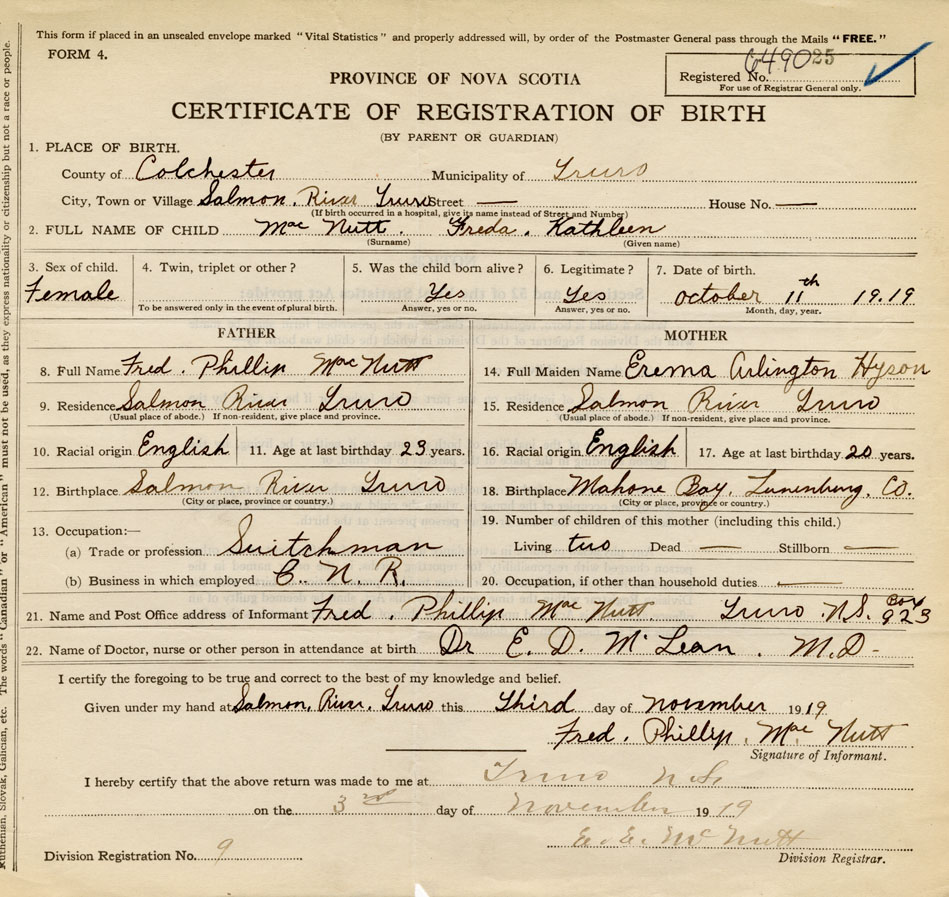 This form if placed in an unsealed envelope marked "Vital Statistics" and properly addressed will, by order of the Postmaster General pass through the Mails "FREE."
FORM 4.
649025
Registered No.
For use of Registrar General only.
PROVINCE OF NOVA SCOTIA
CERTIFICATE OF REGISTRATION OF BIRTH
(BY PARENT OR GUARDIAN)
1. PLACE OF BIRTH.
County of Colchester Municipality of Truro
City, Town or Village Salmon River Truro Street — House No. —
(If birth occurred in a hospital, give its name instead of Street and Number)
2. FULL NAME OF CHILD Mac Nutt. Freda. Kathleen
(Surname) (Given name)
3. Sex of child. 4. Twin, triplet or other? 5. Was the child born alive? 6. Legitimate? 7. Date of birth.
Female Yes Yes October 11th 1919
To be answered only in the event of plural birth. Answer, yes or no. Answer, yes or no. Month, day, year.
FATHER MOTHER
8. Full Name Fred. Phillip MacNutt 14. Full Maiden Name Erema Arlington Hyson
9. Residence Salmon River Truro 15. Residence Salmon River Truro
(Usual place of abode.) If non-resident, give place and province. (Usual place of abode.) If non-resident, give place and province.
10. Racial origin English 11. Age at last birthday 23 years. 16. Racial origin English 17. Age at last birthday 20 years.
12. Birthplace Salmon River Truro 18. Birthplace Mahone Bay, Lunenburg. Co.
(City or place, province or country.) (City or place, province or country.)
13. Occupation:— 19. Number of children of this mother (including this child.)
(a) Trade or profession Suitchman Living two Dead — Stillborn —
(b) Business in which employed C. N. R. 20. Occupation, if other than household duties —
21. Name and Post Office address of Informant Fred. Phillip Mac Nutt. Truro N.S. Box 923
22. Name of Doctor, nurse or other person in attendance at birth Dr E. D. McLean. M.D-
I certify the foregoing to be true and correct to the best of my knowledge and belief.
Given under my hand at Salmon, River, Truro this Third day of November 1919.
Fred. Phillip. Mac Nutt
Signature of Informant.
I hereby certify that the above return was made to me at Truro N.S.
on the 3rd day of November 1919
E. E. McNutt
Division Registration No. 9 Division Registrar.
Ruthenian, Slovak, Galician, etc. The words "Canadian" or "American" must not be used, as they express nationality or citizenship but not a race or people.